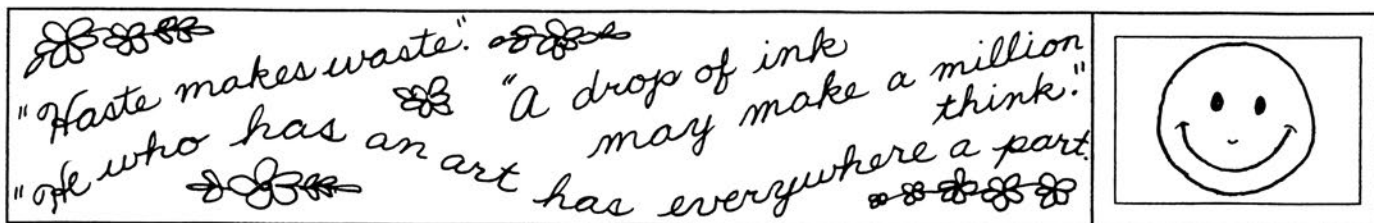 "Haste makes waste."
"A drop of ink
may make a million
think."
"He who has an art has everywhere a part.